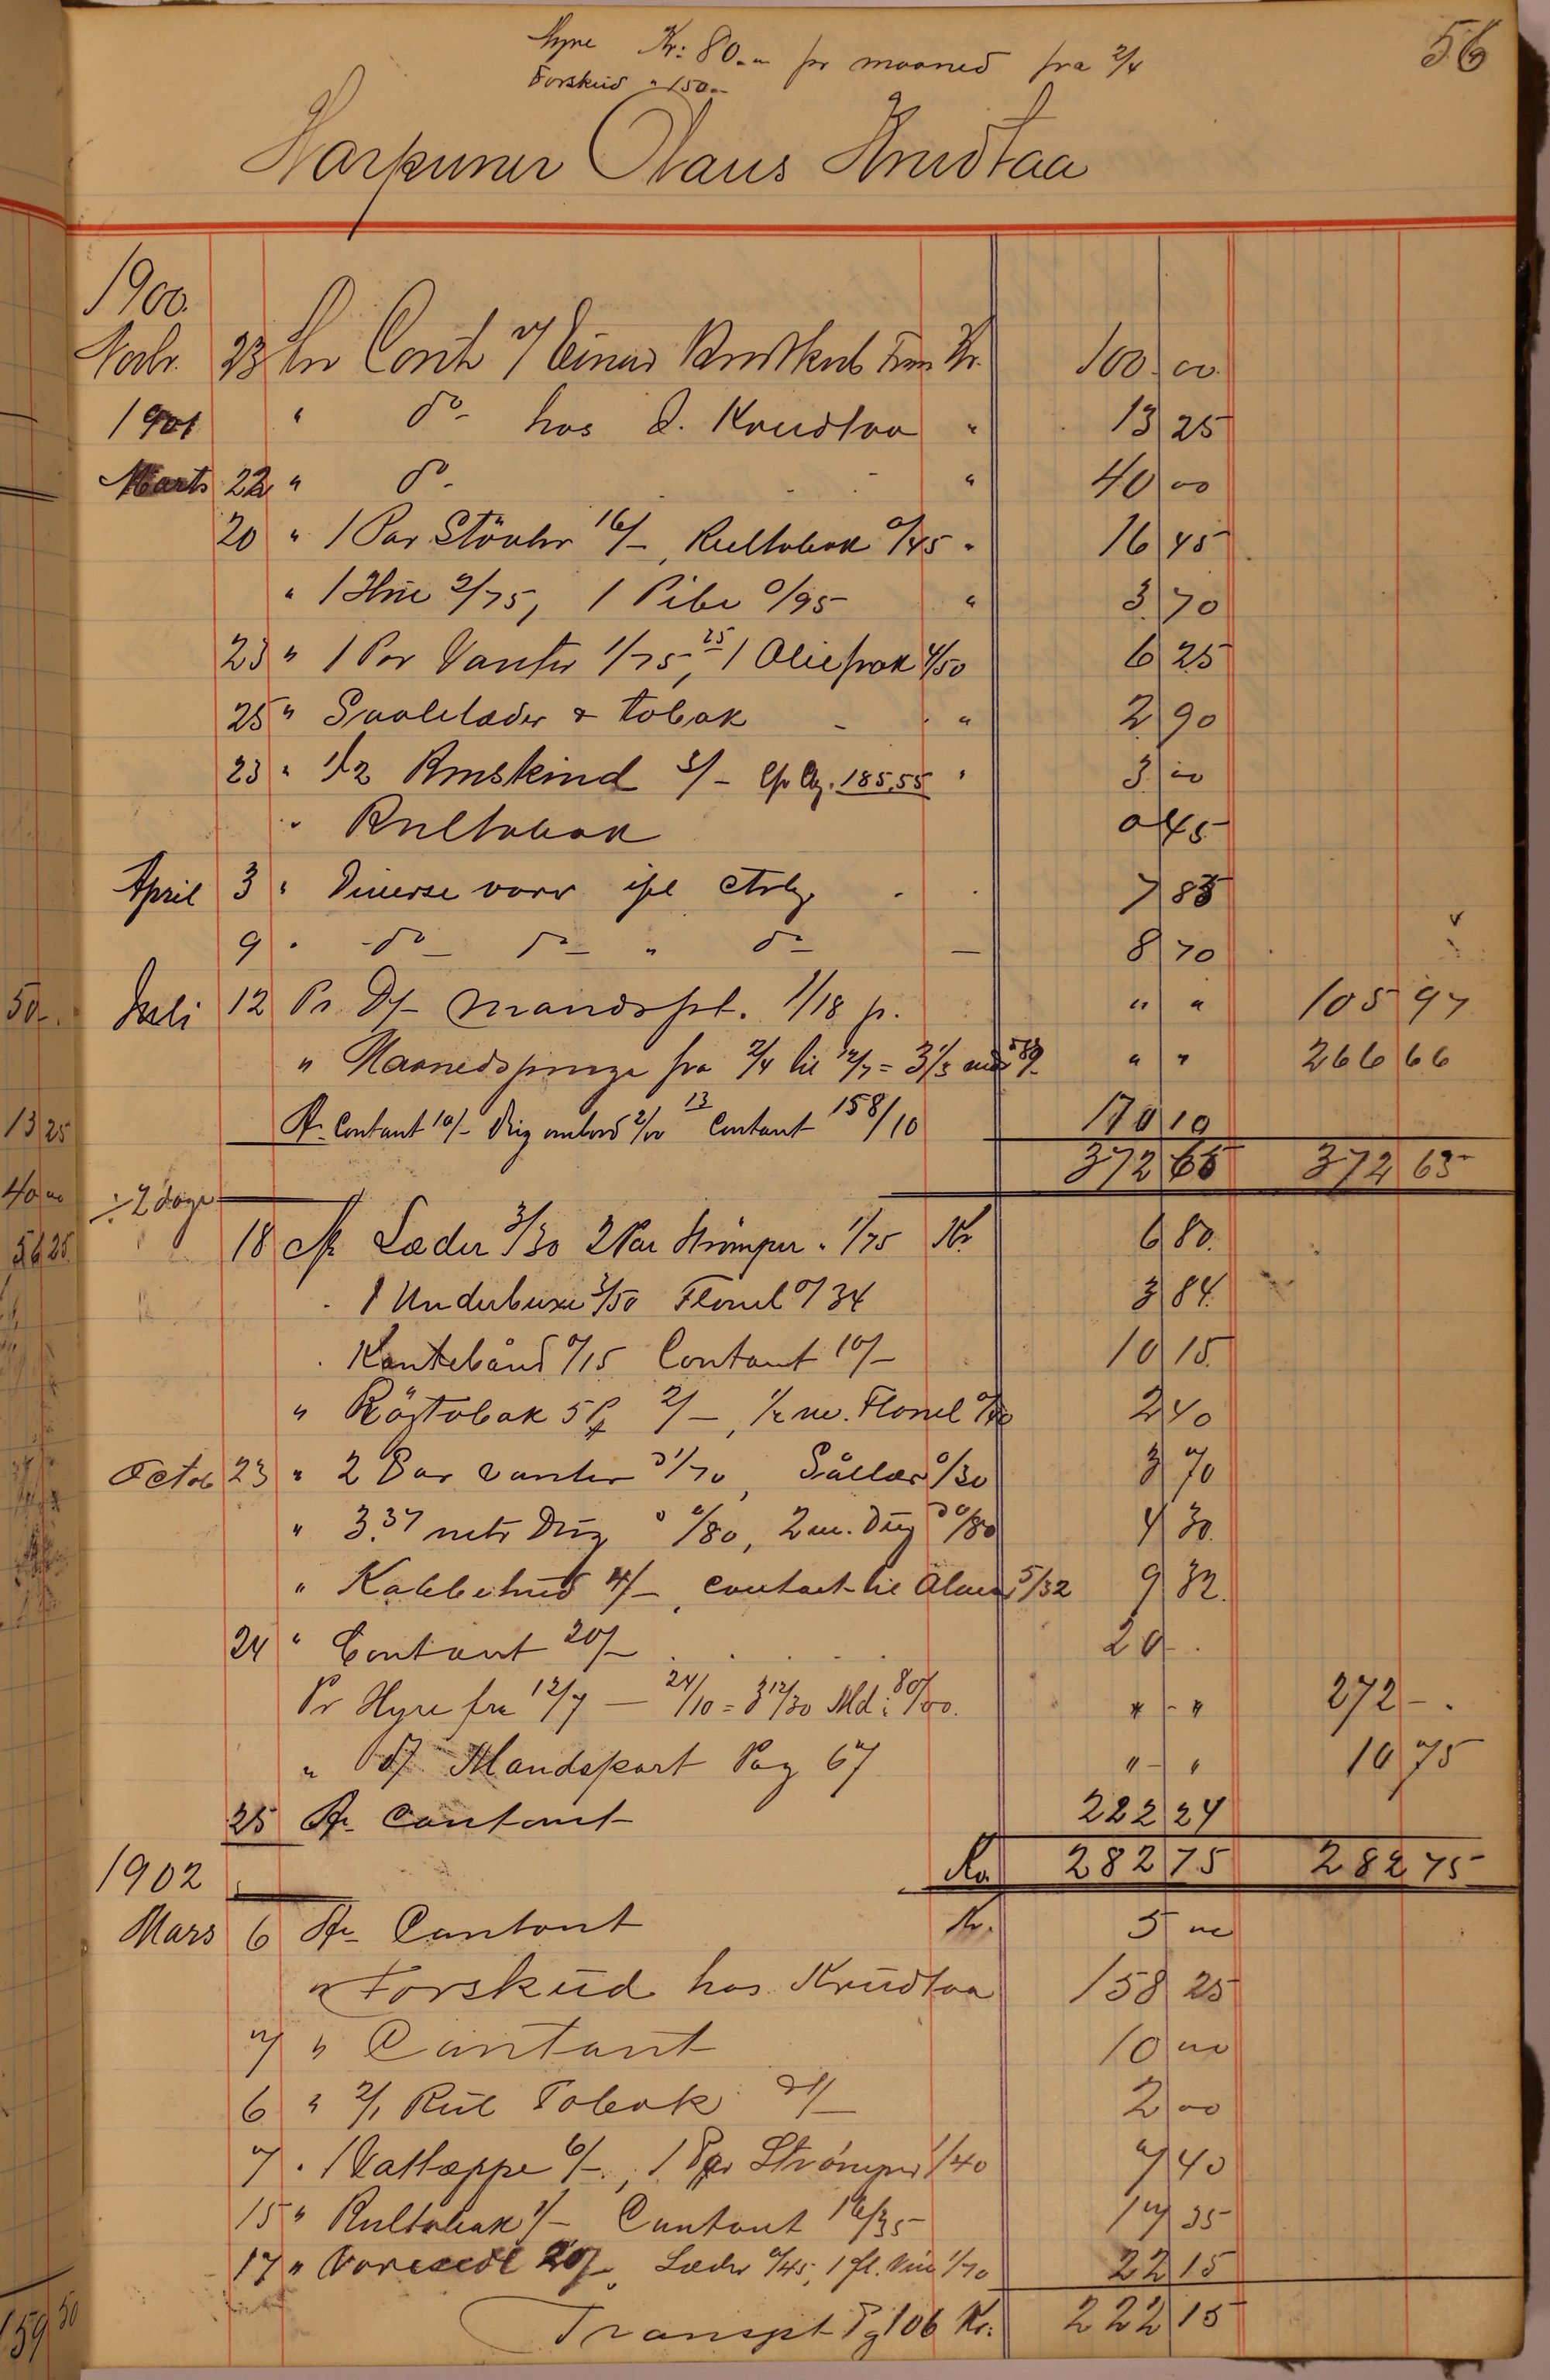 56
Hyre Kr: 80.- pr maaned fra 2/4
Forskud " 150.-
Harpuner Olaus Knudtaa
1900.
Novbr. 23 Cont Kr. 100.00
1901 " do- hos O. Knudtaa " 13 25
Marts 22 " do- " 40 00
20 " 1 Par Stövler 16/-, Rultobak 0/45 " 16 45
" 1 Hue 2/75, 1 Pibe 0/95 " 3 70
23 " 1 Par Vanter 1/75, 25 1 Oliefrak 4/50 6 25
25 " Saaleläder & tobak - " 2 90
23 " 1/2 Rmskind 3/- 185,55 " 3 00
" Rultobak 0 45
April 3 " Diverse varer 7 85
9 " do- do- " do- — 8 70
Juli 12 Pr Df- Mandspt. 1/18 p. " " 105 97
" Maanedspenge fra 2/4 til 12/7 = 3 1/3 " " 266 66
Pr. Contant 10/- Drig ombord 2/00 13 Contant 158/10 170 10
372 65 372 65
÷ 2 dage
18 Läder 3/30 2 Par Strömper " 1/75 Kr 6 80.
" 1 Underbuxe 3/50 Flonel 0/34 3 84.
" Kantebånd 0/15 Contant 10/- 10 15.
" Röstobak 5 2/-, 1/2 m. Flonel 2 40
Octob 23 " 2 Par vanter 1/70, 0/30 3 70
" 3.37 metr Dug 0/80, 2 m. Dug 0/80 4 30.
" 4/-, contant til 5/32 9 32.
24 " Contant 20/- 20 -.
Pr Hyre fra 12/7 — 24/10 = 3 12/30 Md: 80/00. " - " 272 -.
" Df Mandspart Pag 67 " - " 10 75
25 Pr. Contant 222 24
Kr. 282 75 282 75
1902
Mars 6 Pr. Contant Kr. 5 00
" Forskud hos Knudtaa 158 25
7 " Contant 10 00
6 " 2/1 Rul Tobak 2/- 2 00
7 " 1 Vattäppe 6/-, 1 Par Strömper 1/40 7 40
15 " Rultobak 1/- Contant 16/35 17 35
17 " 20/-, Läder 0/45, 1 fl. Vin 1/70 22 15
Transpt Pg 106 Kr. 222 15